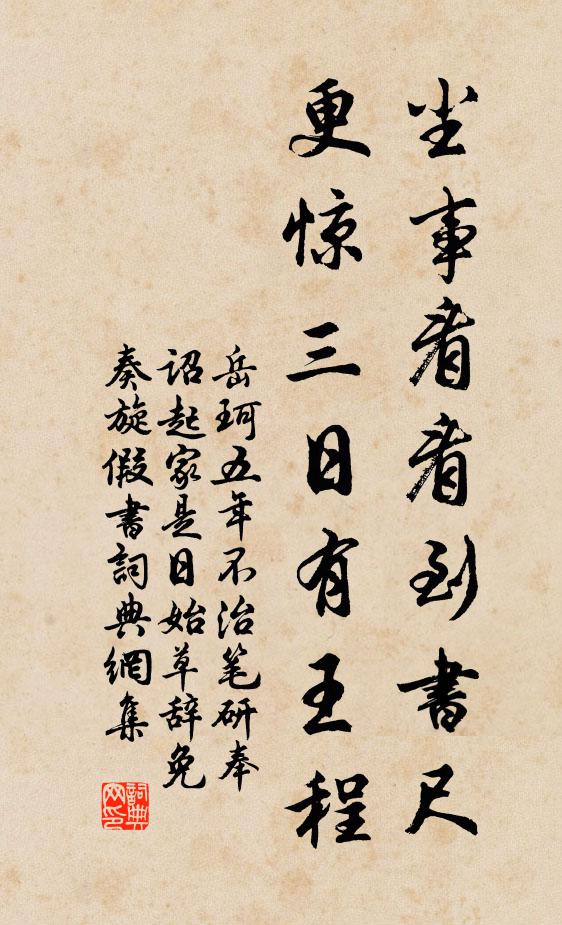 尘事看看到书尺
更惊三日有王程
岳珂五年不治笔研奉
诏起家是日始草辞免
奏旋假书詞典網集
詞典网印